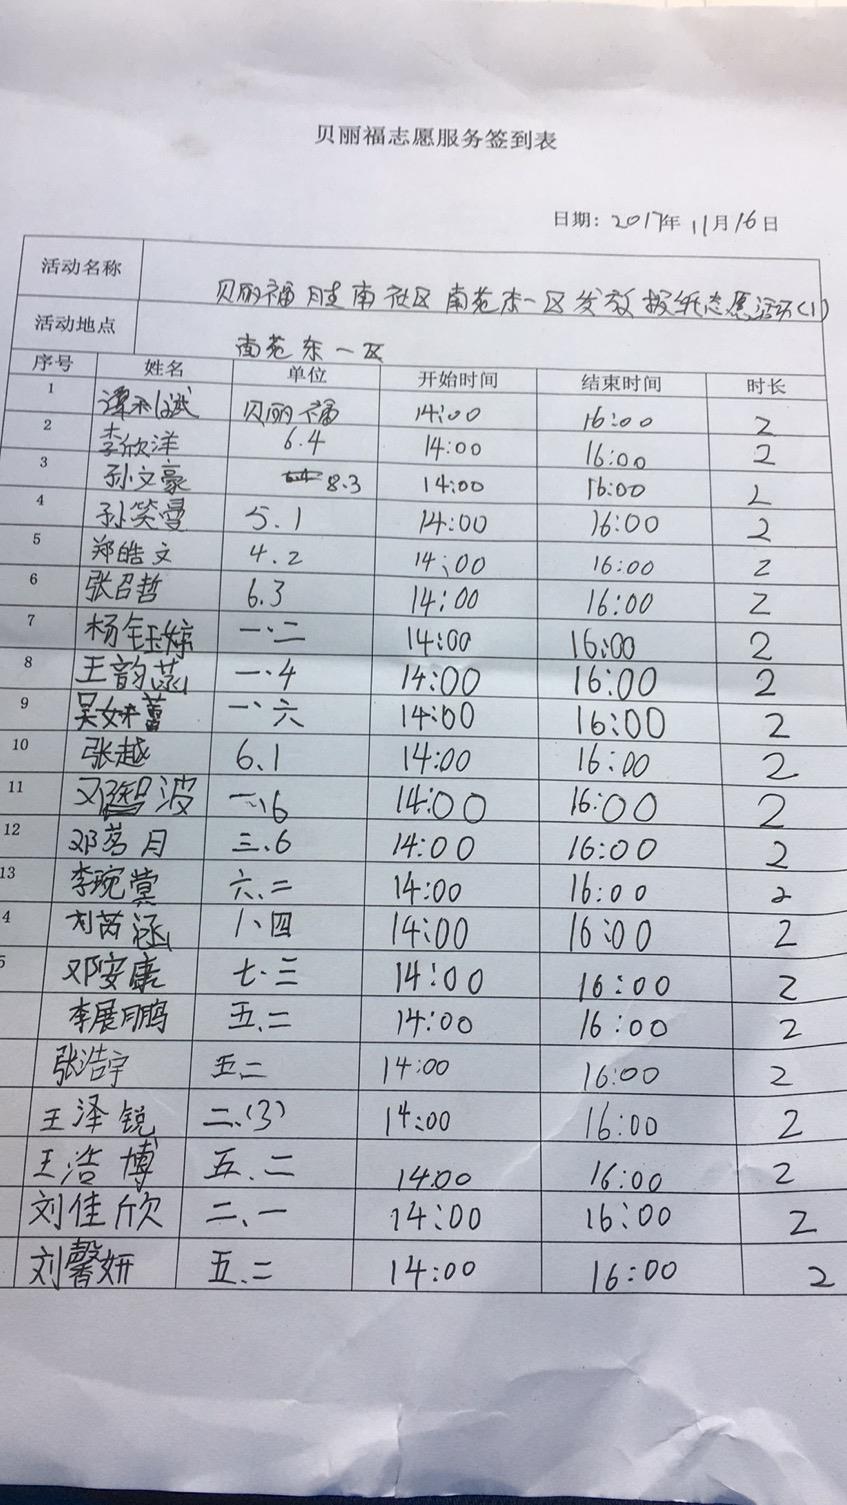 贝丽福志愿服务签到表
日期：2017年11月16日
活动名称 贝丽福胜南社区南苑东一区发放报纸志愿活动(1)
活动地点 南苑东一区
序号 姓名 单位 开始时间 结束时间 时长
1 谭 斌 贝丽福 14:00 16:00 2
2 李欣洋 6.4 14:00 16:00 2
3 孙文豪 8.3 14:00 16:00 2
4 孙笑曼 5.1 14:00 16:00 2
5 郑皓文 4.2 14:00 16:00 2
6 张召哲 6.3 14:00 16:00 2
7 杨钰婷 一.二 14:00 16:00 2
8 王韵 一.4 14:00 16:00 2
9 吴 一.六 14:00 16:00 2
10 张越 6.1 14:00 16:00 2
11 邓智波 一.6 14:00 16:00 2
12 邓茗月 三.6 14:00 16:00 2
13 李琬 六.二 14:00 16:00 2
4 刘芮涵 1、四 14:00 16:00 2
5 邓安康 七.三 14:00 16:00 2
李展鹏 五.二 14:00 16:00 2
张浩宇 五.二 14:00 16:00 2
王泽锐 二.(3) 14:00 16:00 2
王浩博 五.二 14:00 16:00 2
刘佳欣 二、一 14:00 16:00 2
刘馨妍 五.二 14:00 16:00 2